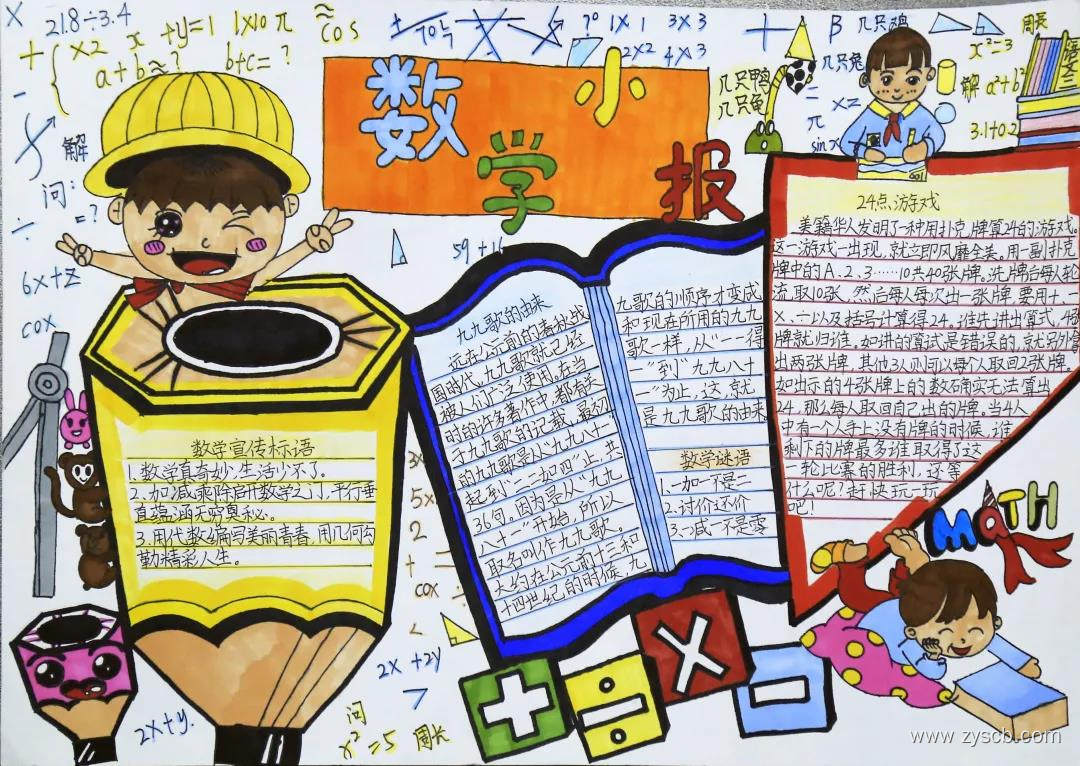 x
21.8÷3.4
+
x2
x
+y=1
1x10 π
≈
cos
a+b≈?
b+c=?
解
问:
=?
÷
6x+z
cox
数
学
小
报
7°
1x1
3x3
2x2
4x3
59+16
β
几只鸡
几只兔
几只鸭
几只鱼
xz
π
sin x
x²=3
解 a²+b²
3.1+0.2
周长
数学宣传标语
1.数学真奇妙,生活少不了。
2.加减乘除启开数学之门,平行垂
直蕴涵无穷奥秘。
3.用代数编写美丽青春,用几何勾
勒精彩人生。
九九歌的由来
远在公元前的春秋战
国时代,九九歌就已经
被人们广泛使用,在当
时的许多著作中,都有关
于九九歌的记载,最初
的九九歌是从“九九八十一
起到“二二如四”止,共
36句。因为是从“九九
八十一”开始,所以
取名叫作九九歌。
大约在公元前十三和
十四世纪的时候,九
九歌的顺序才变成
和现在所用的九九
歌一样,从“一一得
一”到“九九八十
一”为止,这,就
是九九歌的由来
数学谜语
1.一加一不是二
2.讨价还价
3.一减一不是零
24点游戏
美籍华人发明了一种用扑克牌算24的游戏。
这一游戏一出现,就立即风靡全美。用一副扑克
牌中的A、2、3……10共40张牌。洗牌后每人轮
流取10张,然后每人每次出一张牌,要用+、-、
×、÷以及括号计算得24。谁先讲出算式,4张
牌就归谁。如讲的算式是错误的,就另外拿
出两张牌。其他3人则可以每个人取回2张牌。
如出示的4张牌上的数确实无法算出
24,那么每人取回自己出的牌。当4人
中有一个人手上没有牌的时候,谁
剩下的牌最多谁取得了这
一轮比赛的胜利,还等
什么呢?赶快玩一玩
吧!
MATH
5x
2
+
cox
<
2x+2y
2x+y.
问
x²=5
周长
+
÷
×
www.zyscb.com